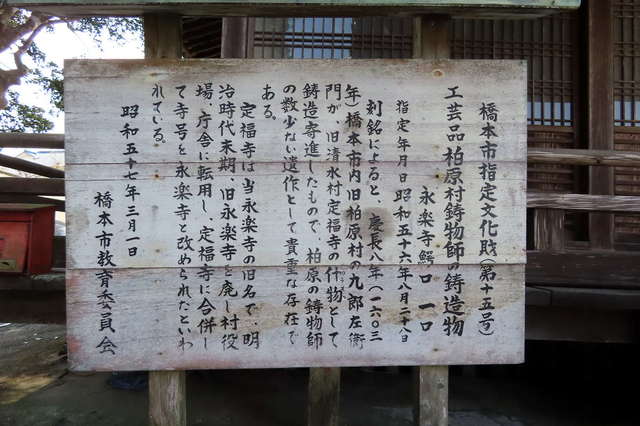 橋本市指定文化財(第十五号)
工芸品 柏原村鋳物師の鋳造物
永楽寺鰐口 一口
指定年月日 昭和五十六年八月二十八日
刻銘によると、慶長八年(一六〇三
年)橋本市内旧柏原村の九郎左衛
門が、旧清水村定福寺の什物として
鋳造寄進したもので、柏原の鋳物師
の数少ない遺作として貴重な存在で
ある。
定福寺は当永楽寺の旧名で、明
治時代末期、旧永楽寺を廃し村役
場、庁舎に転用し、定福寺に合併し
て寺号を永楽寺と改められたといわ
れている。
昭和五十七年三月一日
橋本市教育委員会